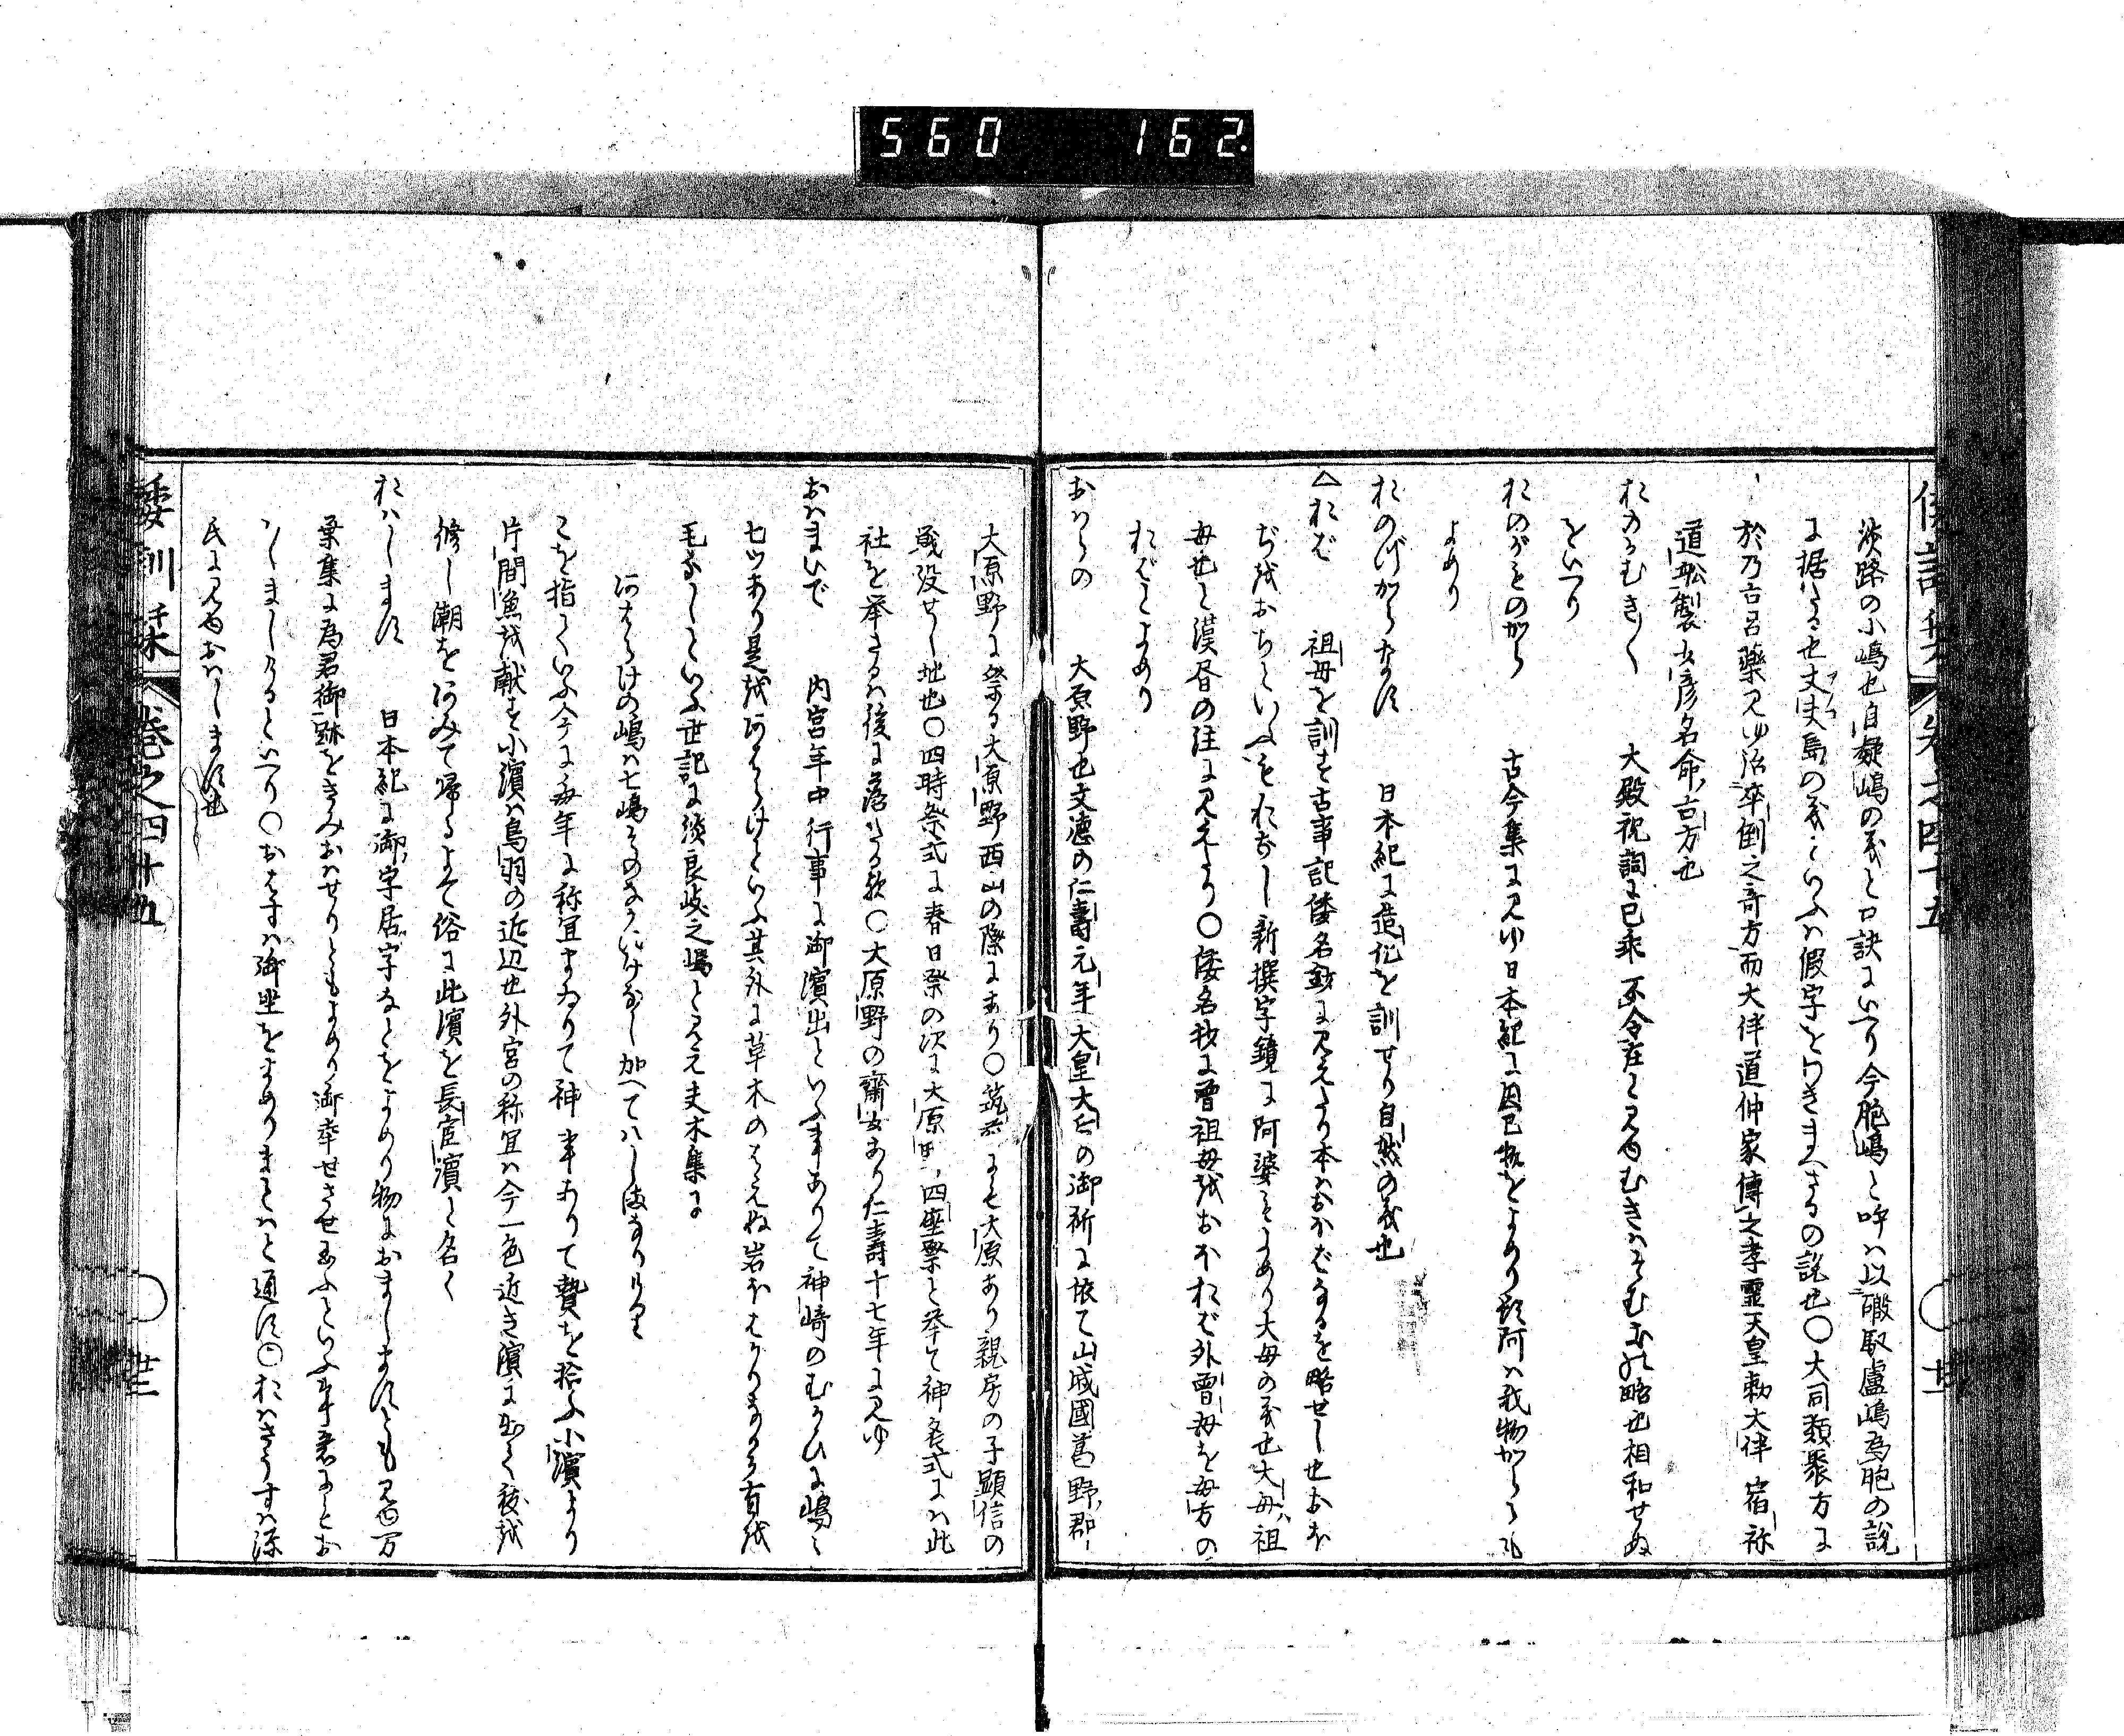 560 162
淡路の小嶋也自凝嶋の義と口訣にいへり今胞嶋と呼ハ以磤馭盧嶋為胞の説
に据れる也丈夫島の義といふハ假字をわきまへさるの説也〇大同類聚方に
於乃古呂藥見ゆ治卒倒之奇方而大伴道仲家傳之孝霊天皇勅大伴宿祢
道舩製少彦名命古方也
おのかむき〳〵 大殿祝詞に己乖不令在と見ゆむきハそむきの略也相和せぬ
をいへり
おのがものから 古今集に見ゆ日本紀に因己物をよめり顕阿ハ我物からも
よめり
おのづからなす 日本紀に造化を訓せり自然の義也
△おば 祖母を訓ず古事記倭名鈔に見えたり本ハおほばなるを略せし也おほ
ぢをおぢといふもおなし新撰字鏡に阿婆をよめり大母の義也大母ハ祖
母也と漢書の注に見えたり〇倭名抄に曽祖母をおほおば外曽母を母方の
おばとよめり
おはらの 大原野也文徳の仁壽元年大皇大后の御祈に依て山城國葛野郡
大原野に祭る大原野西山の際にあり〇筑前にも大原あり親房の子顕信の
戦没せし地也〇四時祭式に春日祭の次に大原野四座祭と挙て神名式にハ此
社を挙さるハ後に落たる歟〇大原野の齋女あり仁壽十七年に見ゆ
おはまいで 内宮年中行事に御濱出といふ事ありて神崎のむかひに嶋々
七ツあり是をあはらけといふ其外に草木のはえぬ岩ほはかりなるか有を
毛なしといふ世記に淡良岐之嶋と見え夫木集に
あはらけの嶋ハ七嶋そのなかにけなし加へてハしまなりけり
こを指ていふ今に毎年に祢宜まゐりて神事ありて贄を拾ふ小濱より
片間魚を献す小濱ハ鳥羽の近辺也外宮の祢宜ハ今一色近き濱に出て祓を
修し潮をあみて帰るよて俗に此濱を長官濱と名く
おハします 日本紀に御字居字なとをよめり物におましますとも見ゆ万
葉集に為君御跡をきみおハせりともよめり御幸せさせ玉ふといふ事者にとお
ハしましけるといへり〇おはすハ御坐をよめりまとハと通す〇おハさうすハ源
氏に見ゆおハします也
倭訓栞 巻之四十五